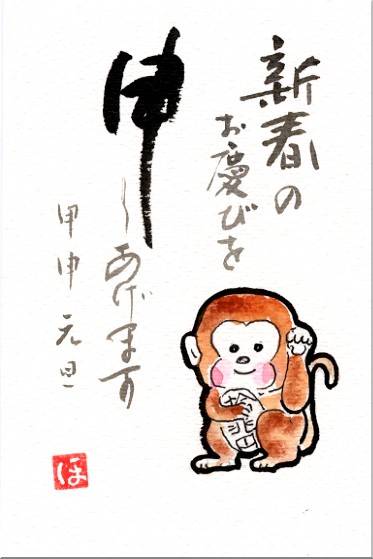 新春の
お慶びを
申
しあげます
甲申 元旦
ほ